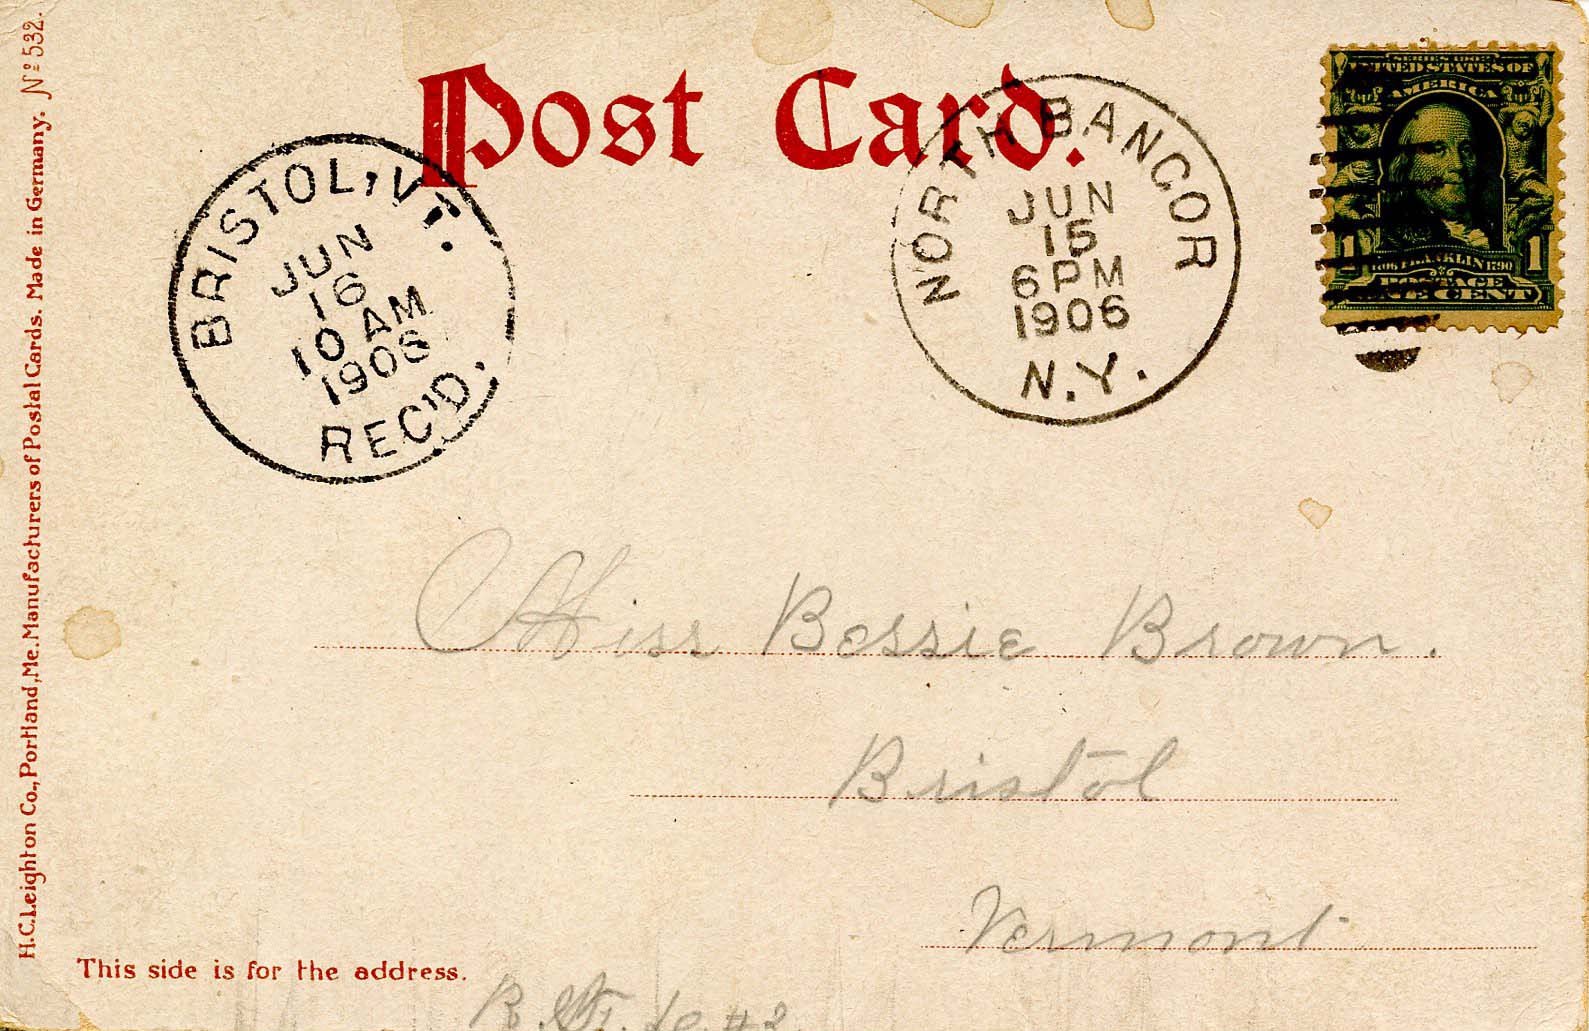 Post Card.
BRISTOL, VT.
JUN
16
10 AM
1906
REC'D.
NORTH BANGOR
JUN
15
6 PM
1906
N.Y.
SERIES 1902
UNITED STATES OF
AMERICA
1 1
1706 FRANKLIN 1790
POSTAGE
ONE CENT
Miss Bessie Brown.
Bristol
Vermont
This side is for the address.
H.C. Leighton Co., Portland, Me. Manufacturers of Postal Cards. Made in Germany. No 532.